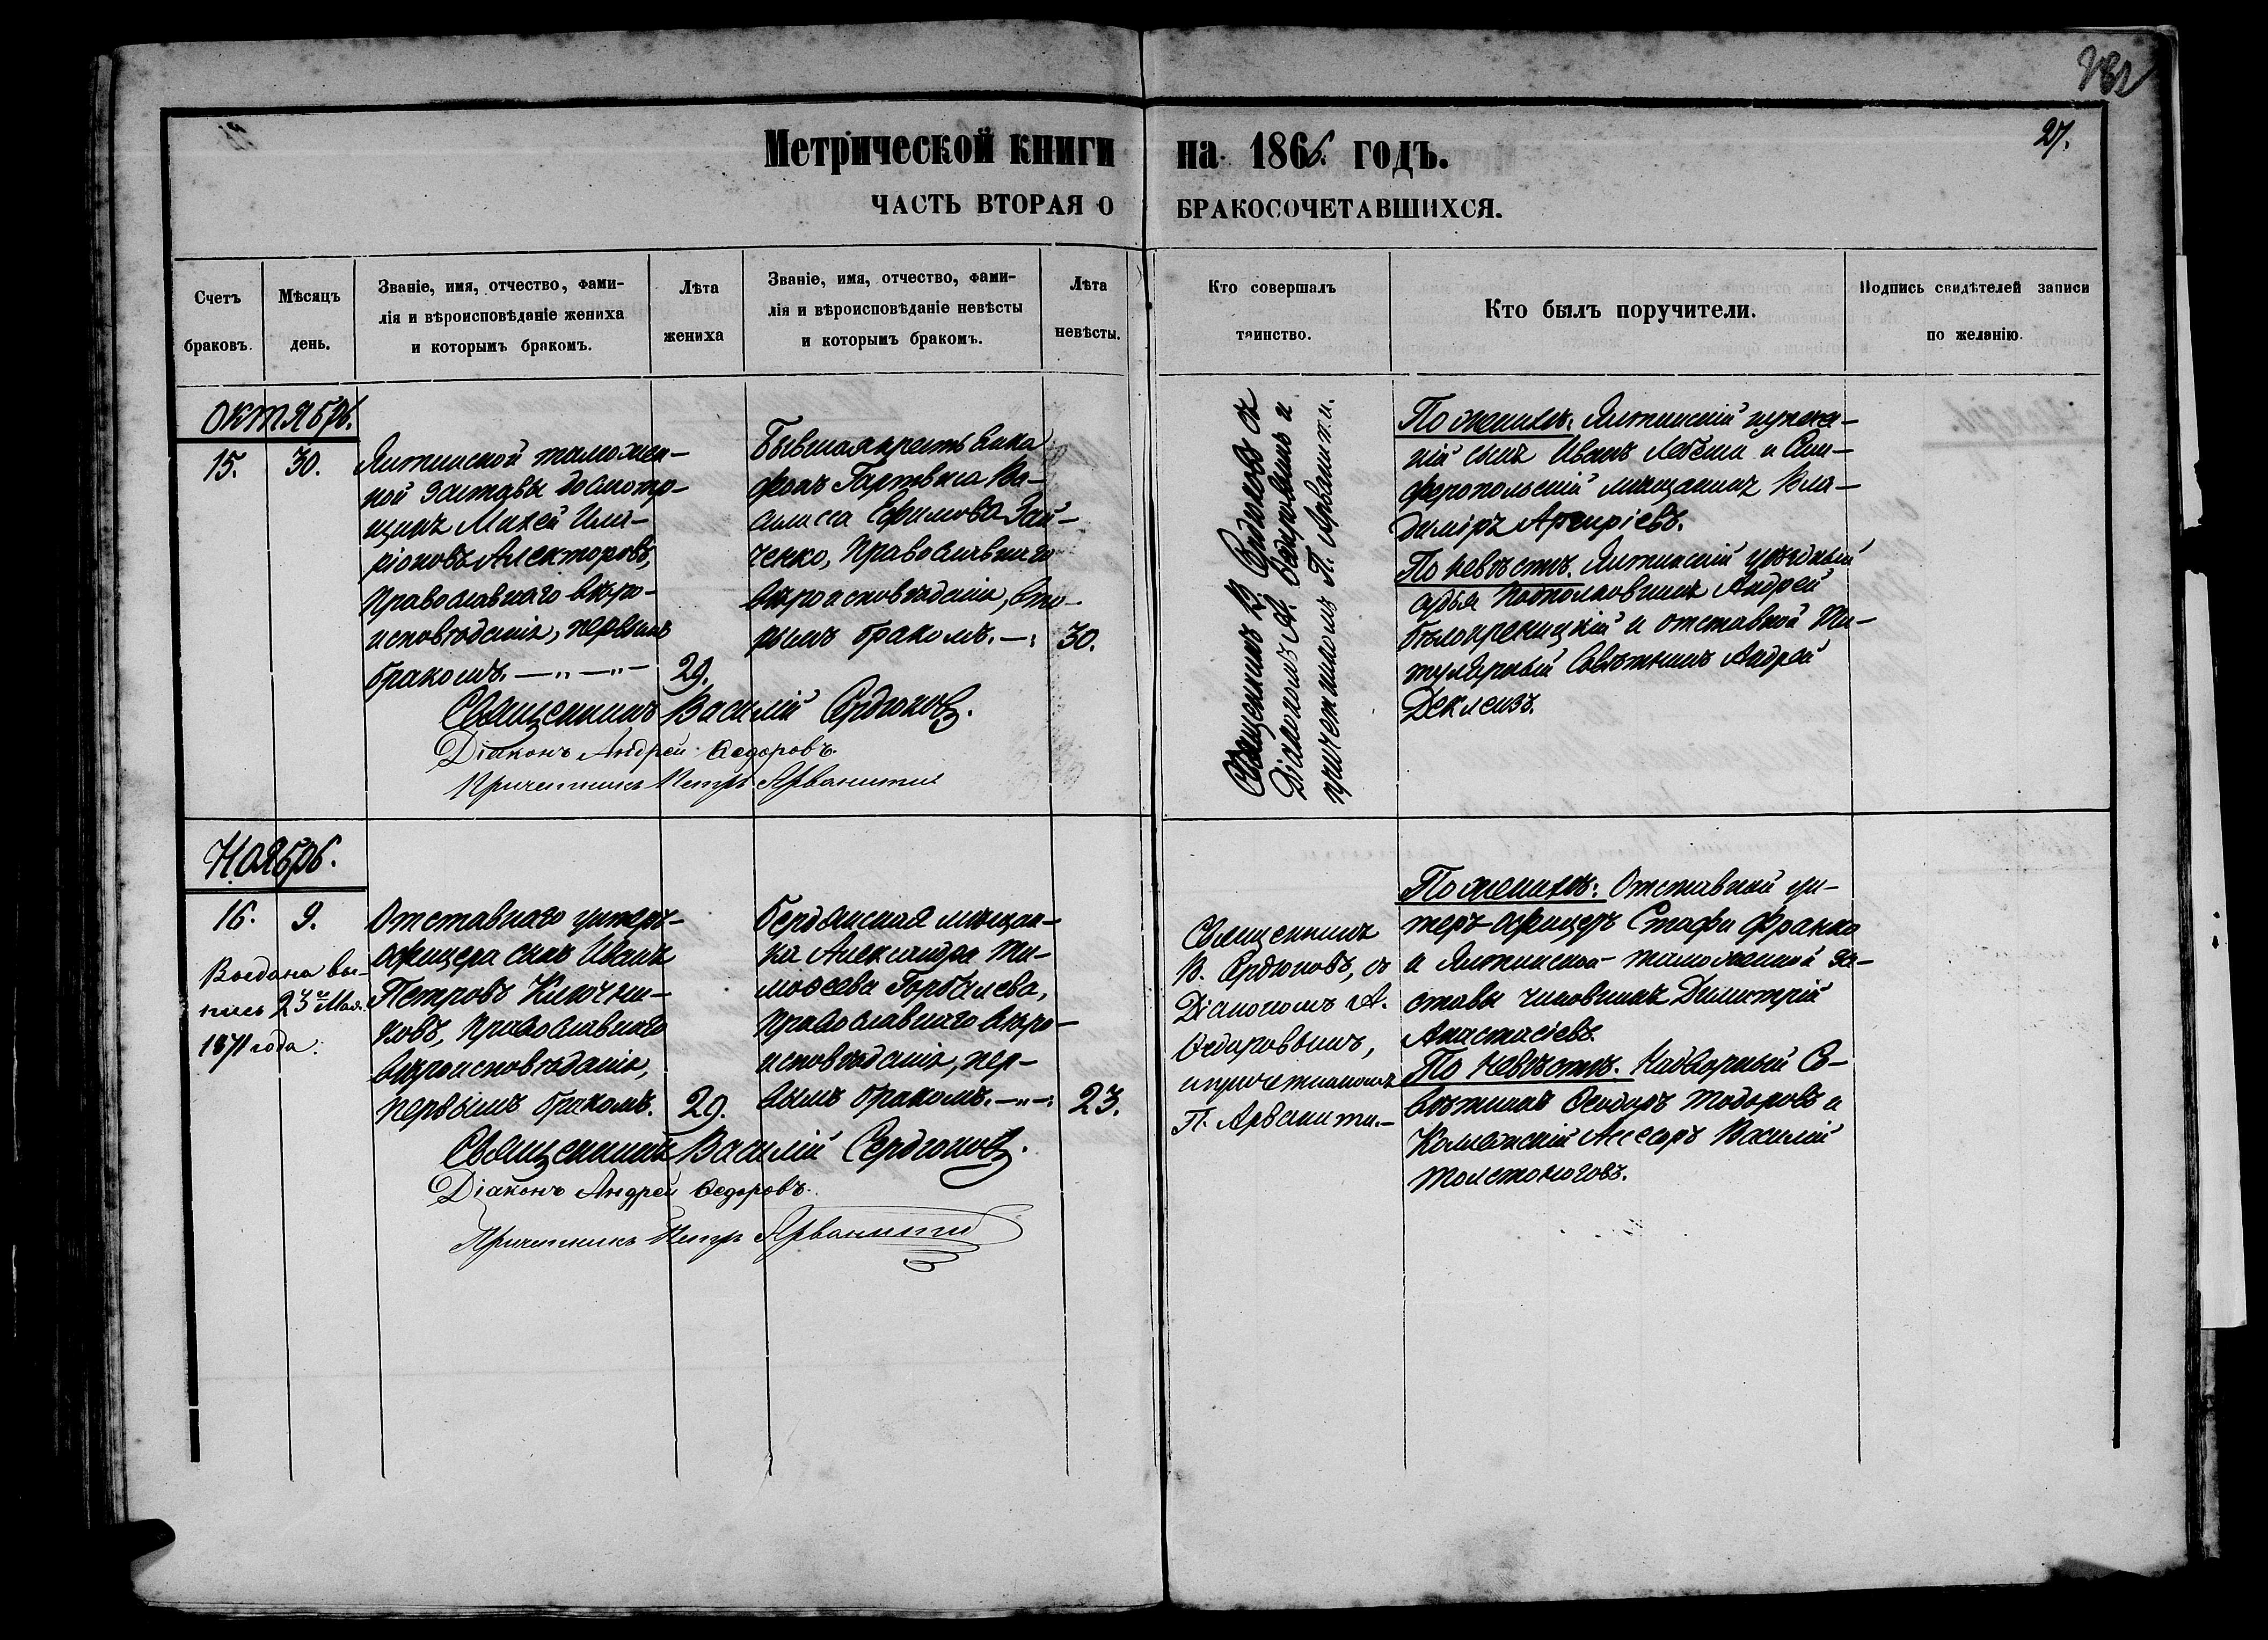 27.
Метрической книги на 1866. годъ.
ЧАСТЬ ВТОРАЯ О БРАКОСОЧЕТАВШИХСЯ.
Счетъ
браковъ.
Мѣсяцъ
день.
Званіе, имя, отчество, фами-
лія и вѣроисповѣданіе жениха
и которымъ бракомъ.
Лѣта
жениха
Званіе, имя, отчество, фами-
лія и вѣроисповѣданіе невѣсты
и которымъ бракомъ.
Лѣта
невѣсты.
Кто совершалъ
таинство.
Кто былъ поручители.
Подпись свидѣтелей записи
по желанію.
Октябрь.
15.
30.
Ялтинской таможен-
ной заставы досмотр-
щикъ Мокей Ила-
ріоновъ Алекторовъ,
Православнаго вѣро-
исповѣданія, первымъ
бракомъ.
29.
Бывшая крестьянка
Ва-
силисса Ефимова Зай-
ченко, Православнаго
вѣроисповѣданія, вто-
рымъ бракомъ.
30.
Священникъ В. Сердюковъ съ
Діакономъ А. Ѳедоровымъ и
причетникомъ П. Арванити.
По женихѣ: Ялтинскій купече-
скій сынъ Иванъ и Сим-
феропольскій мѣщанинъ Вла-
диміръ Аргиріевъ.
По невѣстѣ: Ялтинскій уѣздный
судья Подполковникъ Андрей
Бѣлокреницкій и отставной Ти-
тулярный Совѣтникъ Андрей
Деклезъ.
Священникъ Василій Сердюковъ.
Діаконъ Андрей Ѳедоровъ.
Причетникъ Петръ Арванити
Ноябрь.
16.
9.
Выдана вы-
пись 23го Мая
1871 года.
Отставнаго унтеръ-
офицера сынъ Иванъ
Петровъ Ключни-
ковъ, Православнаго
вѣроисповѣданія,
первымъ бракомъ.
29.
Бердянская мѣщан-
ка Александра Ти-
моѳеева Горбачева,
Православнаго вѣро-
исповѣданія, пер-
вымъ бракомъ.
23.
Священникъ
В. Сердюковъ, съ
Діакономъ А.
Ѳедоровымъ,
и причетникомъ
П. Арванити.
По женихѣ: Отставной ун-
теръ-офицеръ Стафи Франко
и Ялтинской таможенной за-
ставы чиновникъ Димитрій
Анастасіевъ.
По невѣстѣ: Надворный Со-
вѣтникъ Ѳеодоръ Тодоровъ и
Коллежскій Ассесоръ Василій
Толстоноговъ.
Священникъ Василій Сердюковъ.
Діаконъ Андрей Ѳедоровъ.
Причетникъ Петръ Арванити